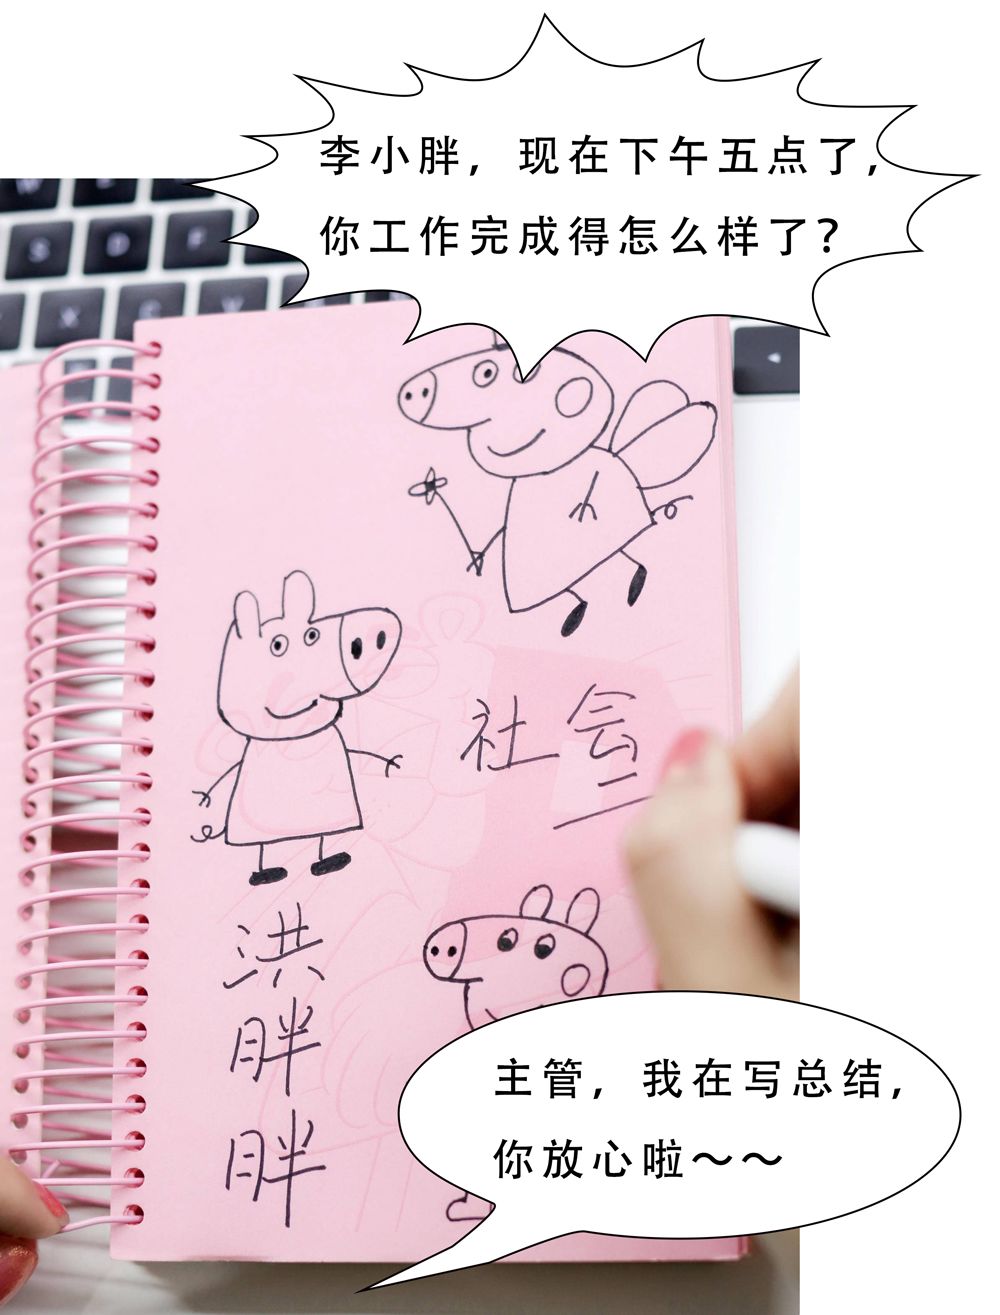 李小胖，现在下午五点了，
你工作完成得怎么样了？
社会
洪
胖
胖
主管，我在写总结，
你放心啦～～